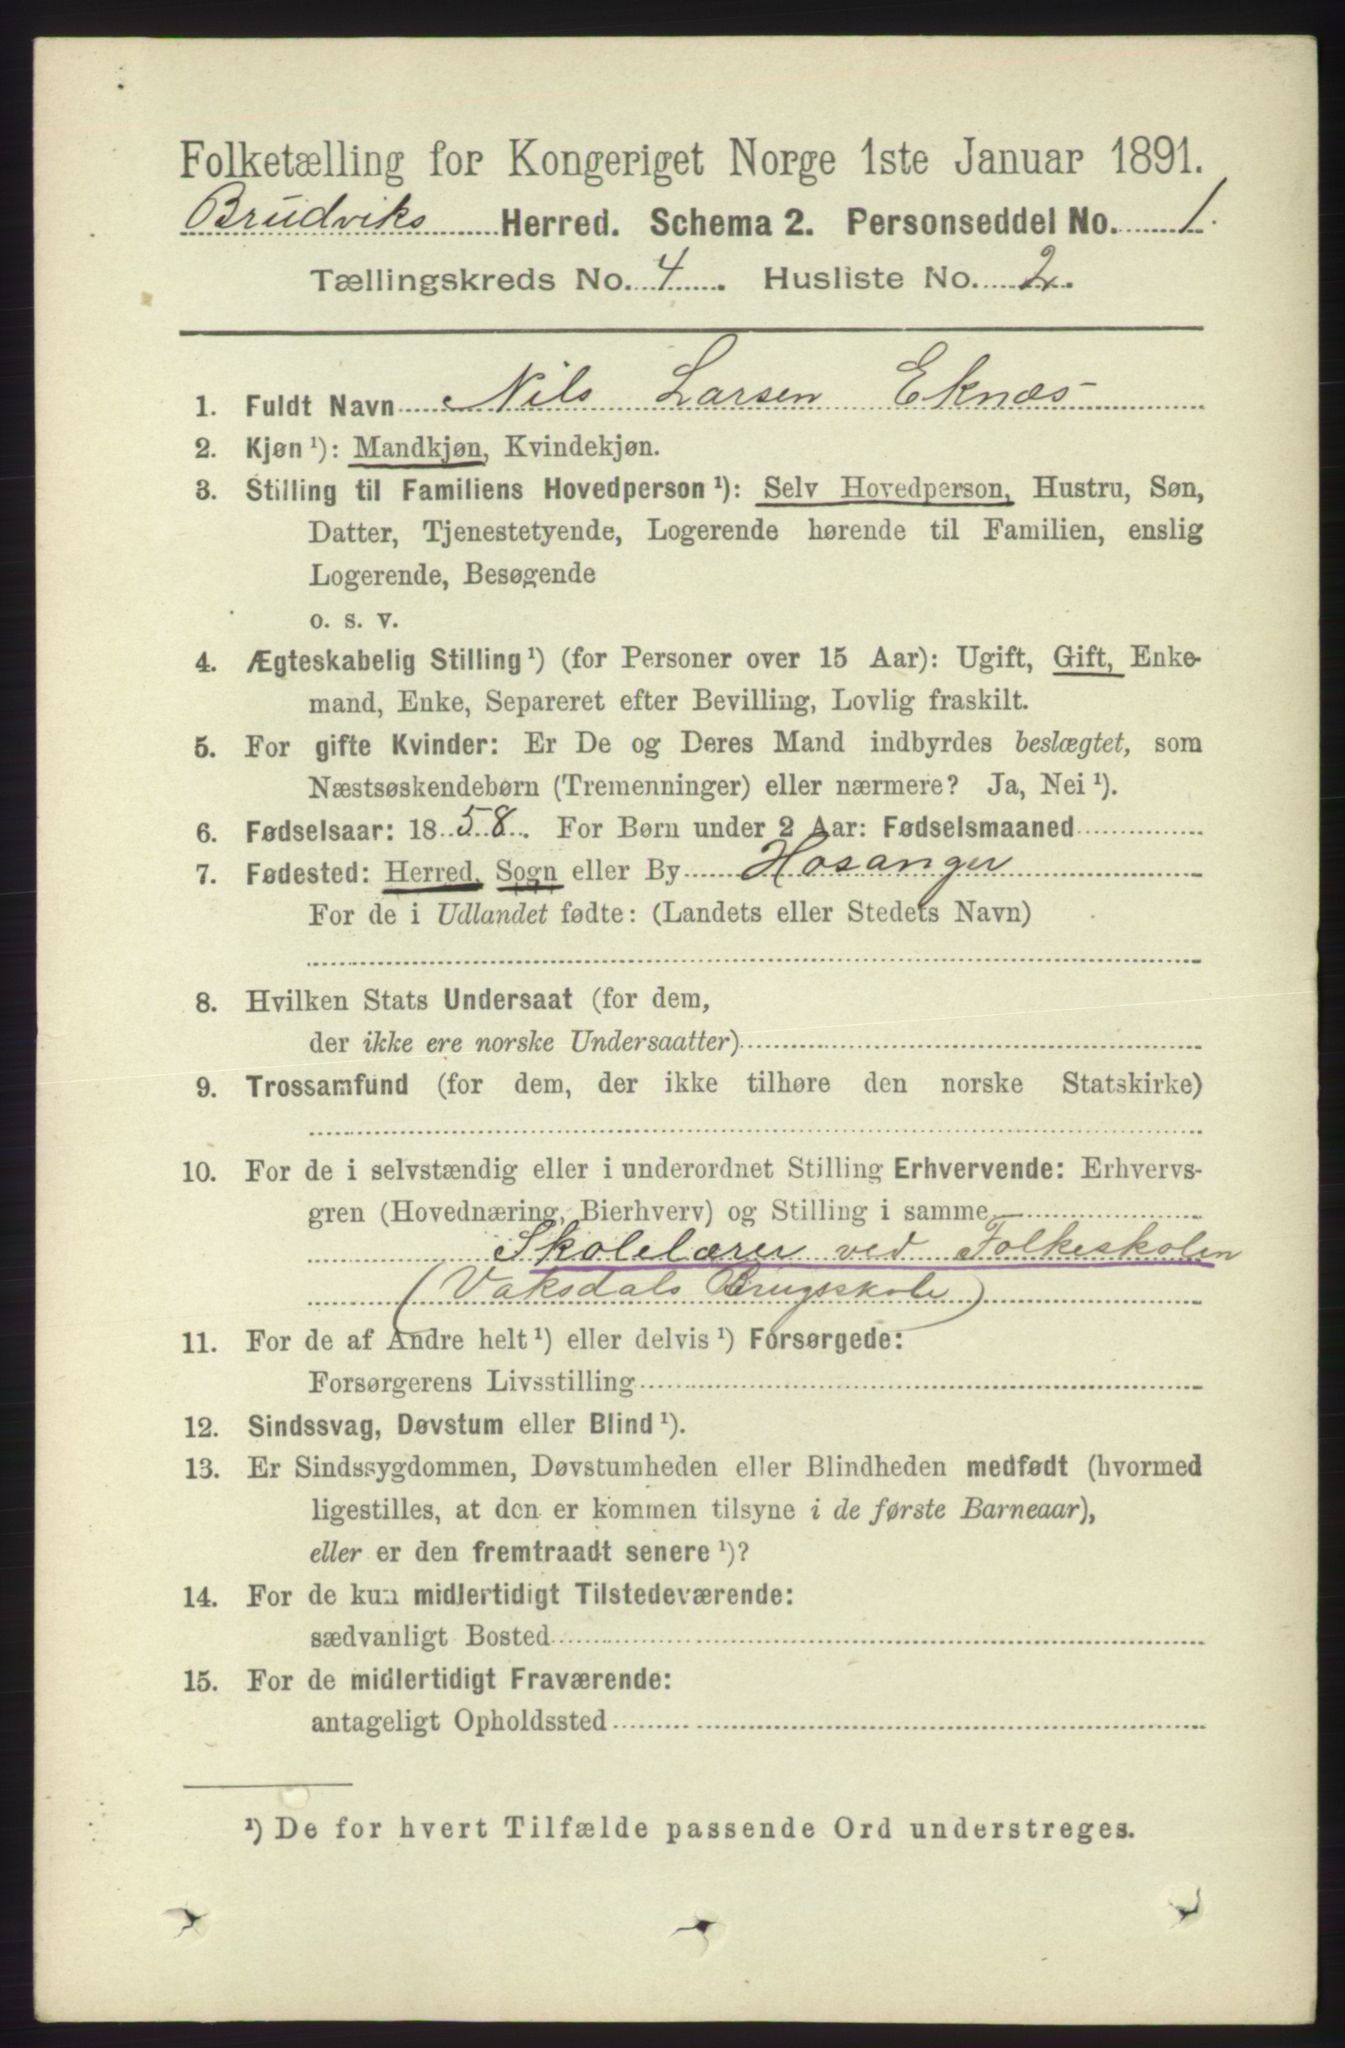 Folketælling for Kongeriget Norge 1ste Januar 1891.
Brudviks Herred. Schema 2. Personseddel No. 1.
Tællingskreds No. 4. Husliste No. 2.
1. Fuldt Navn Nils Larsen Eknæs
2. Kjøn ¹): Mandkjøn, Kvindekjøn.
3. Stilling til Familiens Hovedperson ¹): Selv Hovedperson, Hustru, Søn,
Datter, Tjenestetyende, Logerende hørende til Familien, enslig
Logerende, Besøgende
o. s. v.
4. Ægteskabelig Stilling ¹) (for Personer over 15 Aar): Ugift, Gift, Enke-
mand, Enke, Separeret efter Bevilling, Lovlig fraskilt.
5. For gifte Kvinder: Er De og Deres Mand indbyrdes beslægtet, som
Næstsøskendebørn (Tremenninger) eller nærmere? Ja, Nei ¹).
6. Fødselsaar: 1858. For Børn under 2 Aar: Fødselsmaaned
7. Fødested: Herred, Sogn eller By Hosanger
For de i Udlandet fødte: (Landets eller Stedets Navn)
8. Hvilken Stats Undersaat (for dem,
der ikke ere norske Undersaatter)
9. Trossamfund (for dem, der ikke tilhøre den norske Statskirke)
10. For de i selvstændig eller i underordnet Stilling Erhvervende: Erhvervs-
gren (Hovednæring, Bierhverv) og Stilling i samme
Skolelærer ved Folkeskolen
(Vaksdals Brugsskole)
11. For de af Andre helt ¹) eller delvis ¹) Forsørgede:
Forsørgerens Livsstilling
12. Sindssvag, Døvstum eller Blind ¹).
13. Er Sindssygdommen, Døvstumheden eller Blindheden medfødt (hvormed
ligestilles, at den er kommen tilsyne i de første Barneaar),
eller er den fremtraadt senere ¹)?
14. For de kun midlertidigt Tilstedeværende:
sædvanligt Bosted
15. For de midlertidigt Fraværende:
antageligt Opholdssted
¹) De for hvert Tilfælde passende Ord understreges.